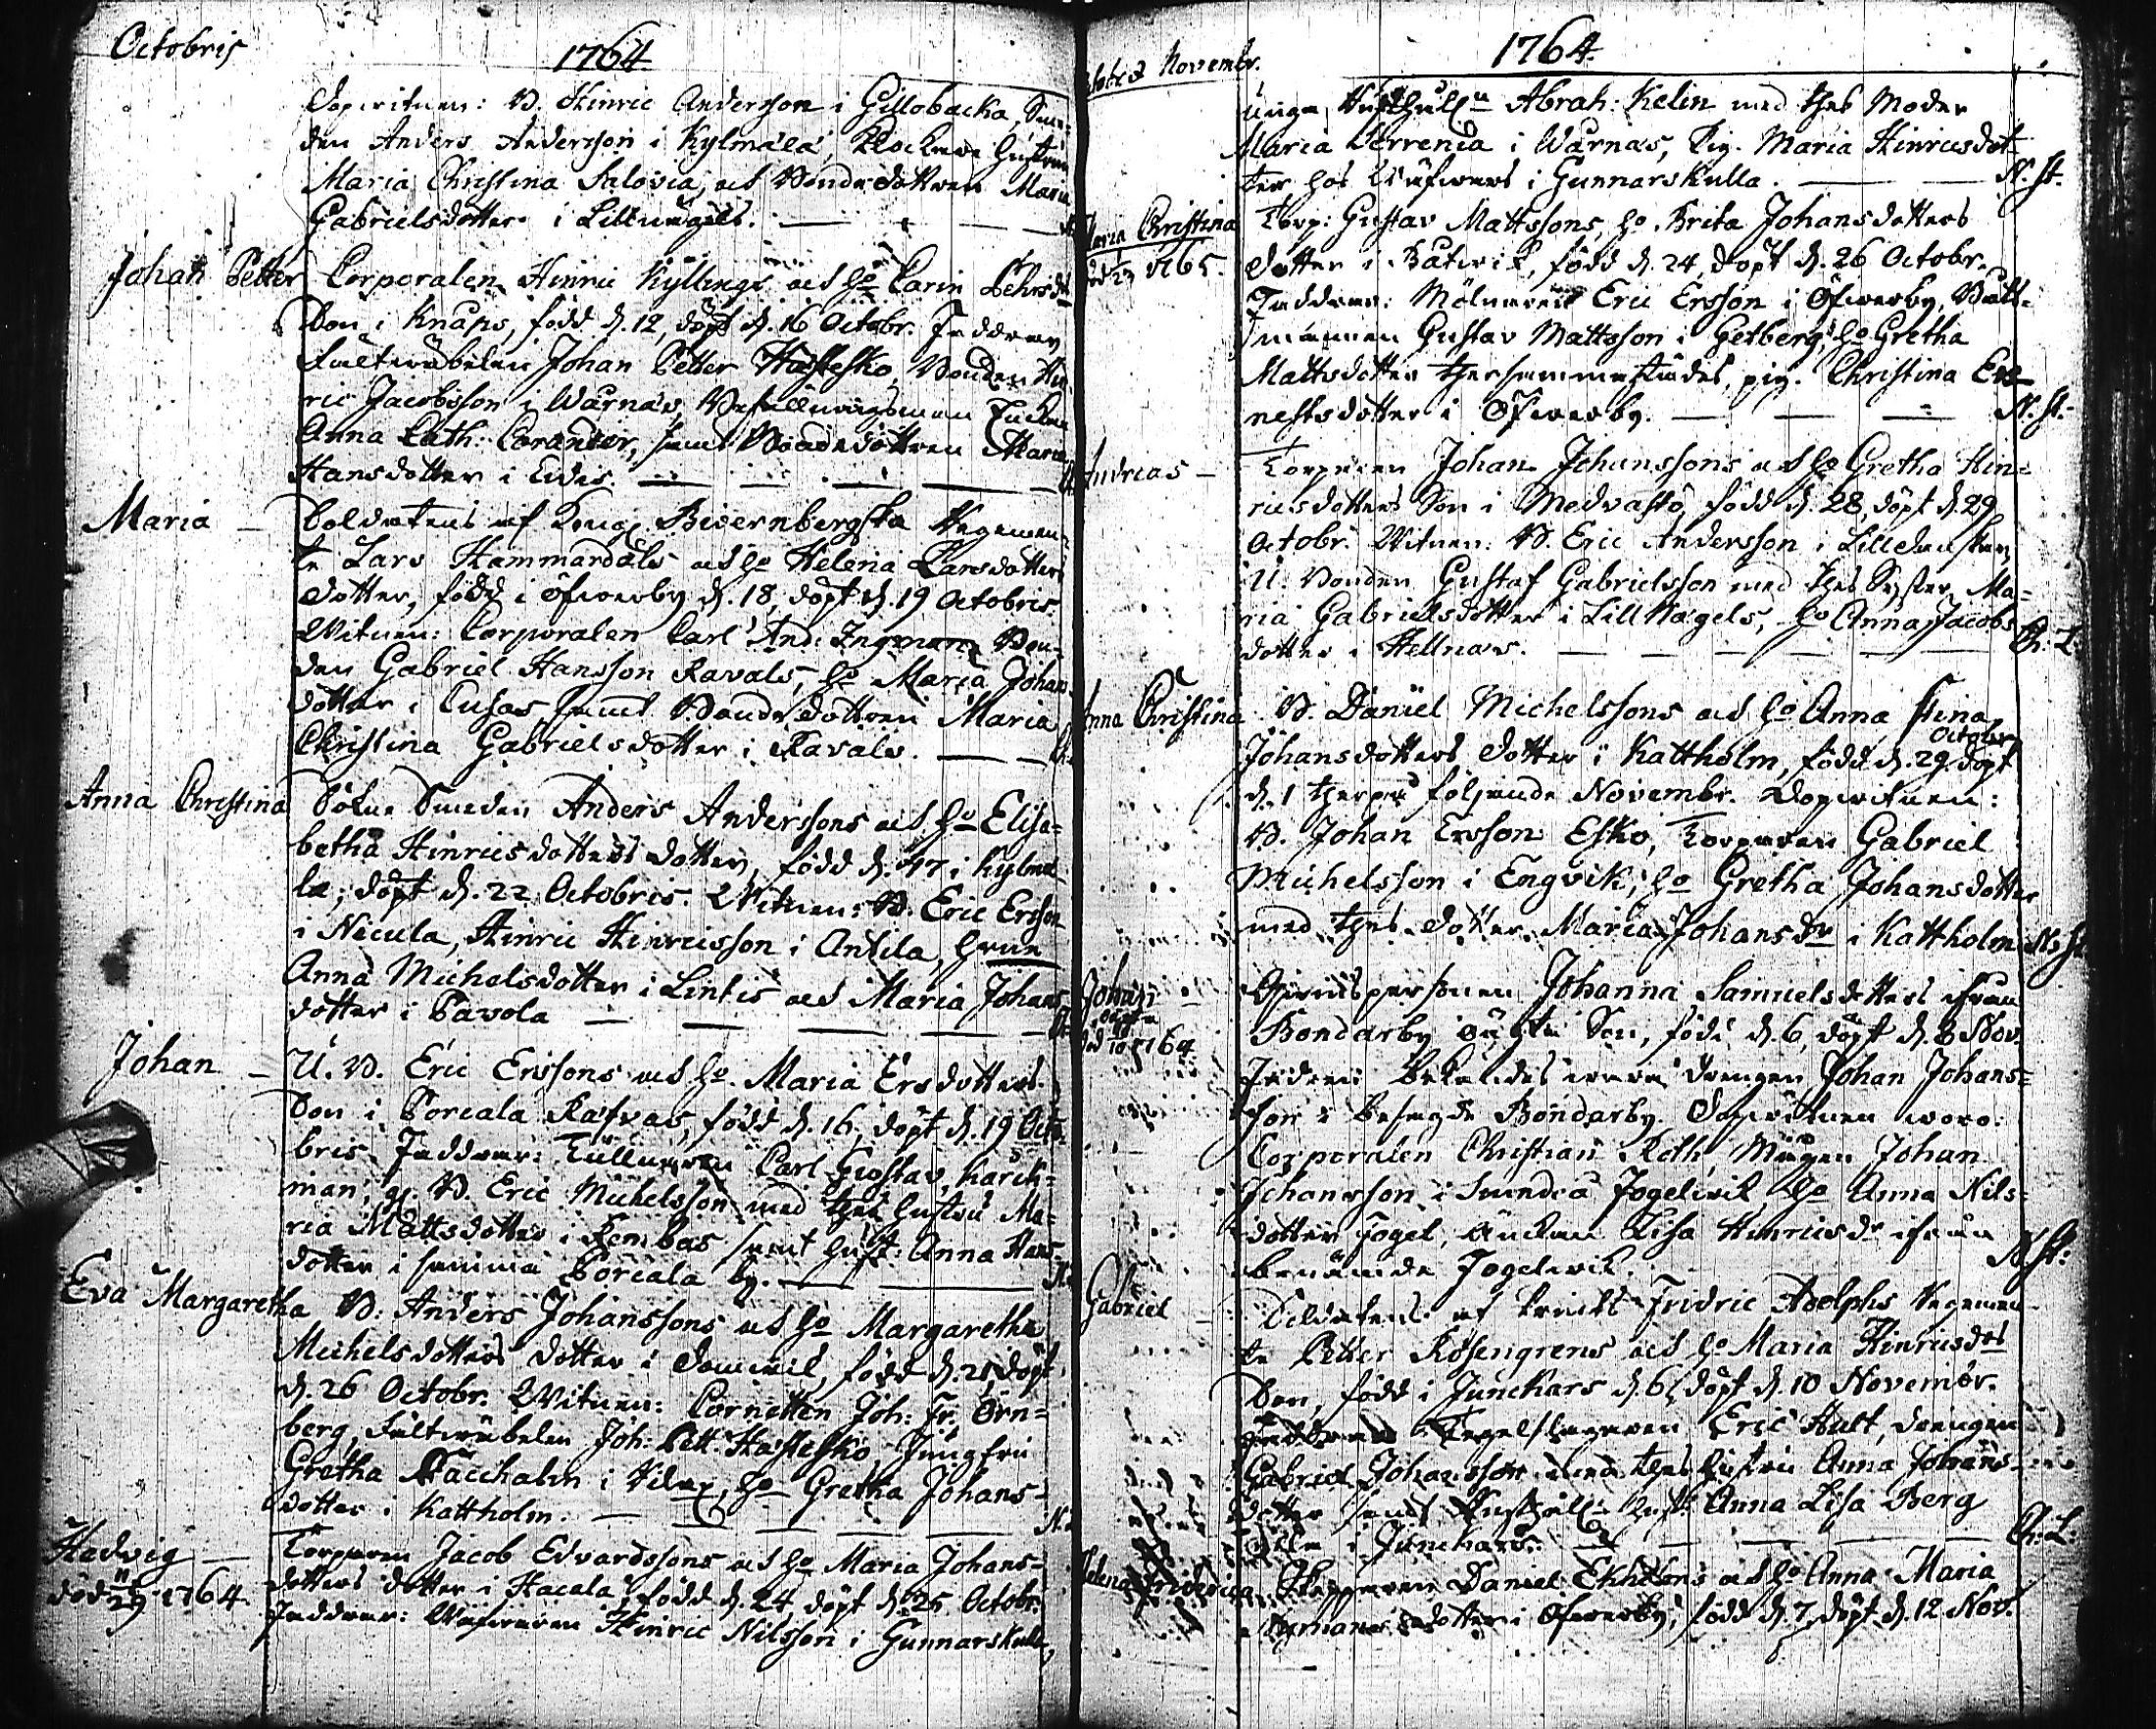 Octobris
1764
Dopwitnen: B. Hinric Andersson i Gillobacka, Sme=
den Anders Andersson i Kylmälä, Klockare hustrun
Maria Christina Salovia, och Bondedottren Maria
Gabrielsdotter i Lillnägels.
Johan Petter
Corporalen Hinric Kyllings och ho Carin Pehrsd
Son i Knaps, född d. 12, döpt d. 16 Octobr. Faddrar
Fältwäbelen Johan Petter Hästesko, Bonden Hin
ric Jacobsson i Wärnäs, Befallningsman
Anna Cath: Corander, samt Bondedottren Maria
Hansdotter i Eidis.
Maria
Soldatens af Kongl. Biörnbergska Regemen
te Lars Hammardals och ho Helena Larsdotters
dotter, född i Öfwerby d. 18, döpt d. 19 Octobris.
Witnen: Corporalen Carl And: Ingman, Bon=
den Gabriel Hansson Ravals, ho Maria Johans
dotter i Cusas samt Bondedottren Maria
Christina Gabrielsdotter i Ravals.
Anna Christina
Sokne Smeden Anders Anderssons och ho Elisa=
betha Hinricsdotters dotter, född d. 17 i Kylmä
lä, döpt d. 22 Octobris. Witnen: B. Eric Ersson
i Nicula, Hinric Hinricsson i Antila,
Anna Michelsdotter i Lintis och Maria Johans
dotter i Pavola
Johan
U. B. Eric Erssons och ho. Maria Ersdotters
Son i Porcala Räfvas, född d. 16, döpt d. 19 Octo
bris. Faddrar: Tullnären Carl Gustav Karck=
man, B. Eric Michelsson med thes hustru Ma=
ria Mattsdotter i Rembas samt hust: Anna Hans=
dotter i samma Porcala by.
Eva Margaretha
B. Anders Johanssons och ho Margaretha
Michelsdotters dotter i född d. 21, döpt
d. 26 Octobr. Witnen: Cornetten Joh: Fr. Örn=
berg, Fältwäbelen Joh: Pett: Hästesko, Jungfru
Gretha i ho Gretha Johans=
dotter i Kattholm.
Hedvig
död 1764.
Torparen Jacob Edvardssons och ho Maria Johans=
dotters dotter i Hacala, född d. 24 döpt d. 25 Octobr.
Faddrar: Wäfwaren Hinric Nilsson i Gunnarskulla,
Novembr.
1764.
unga Abrah: Kelin med thes Moder
Maria Serrenia i Wärnäs, Pig. Maria Hinricsdot=
ter hos Wäfware i Gunnarskulla. N. St.
Maria Christina
1765.
Torp: Gustav Mattssons, ho. Brita Johansdotters
dotter i Båtwik, född d. 24, döpt d. 26 Octobr.
Faddrar: Mölnaren Eric Ersson i Öfwerby, Båts=
mannen Gustav Mattsson i Getberg, ho Gretha
Mattsdotter thersammastädes, pig. Christina Er
nestsdotter i Öfwerby. N. St.
Andreas
Torparen Johan Johanssons och ho Gretha Hin=
ricsdotters Son i Medvastö, född d. 28, döpt d. 29
Octobr. Witnen: B. Eric Andersson i
U. Bonden Gustaf Gabrielsson med thes Syster Ma=
ria Gabrielsdotter i Lill Nägels, ho Anna Jacobs
dotter i Hellnäs.
Anna Christina
B. Daniel Michelssons och ho Anna Stina
Octobr.
Johansdotters dotter i Kattholm, född d. 29 döpt
d. 1 therpå följande Novembr. Dopwitnen:
B. Johan Ersson Esko, Torparen Gabriel
Michelsson i Engvik, ho Gretha Johansdotter
med thes dotter Maria Johansdr i Kattholm N. St.
Johan
oägta
död 1764
Qwinspersonen Johanna Samuelsdotters ifrån
Bondarby oägta Son, född d. 6, döpt d. 8 Nov.
Fadren bekändes wara drengen Johan Johans=
son i besagde Bondarby. Dopwitnen woro:
Corporalen Christian Roth, Mågen Johan
Johansson i Smedså Fogelwik, ho Anna Nils=
dotter Fogel, änkan Lisa Hinricsdr ifrån
benämde Fogelwik. N. St.
Gabriel
Soldatens af Prints Fridric Adolphs Regemen
te Petter Rosengrens och ho Maria Hinricsdrs
Son, född i Junckars d. 6, döpt d. 10 Novembr.
Faddrar Tegelslagaren Eric Hult, drengen
Gabriel Johansson med thes hustru Anna Johans=
dotter samt Anna Lisa Berg
i Junckars.
Helena Fridrica
Skepparen Daniel Ekholms och ho Anna Maria
dotter i Öfwerby, född d. 7, döpt d. 12 Nov.